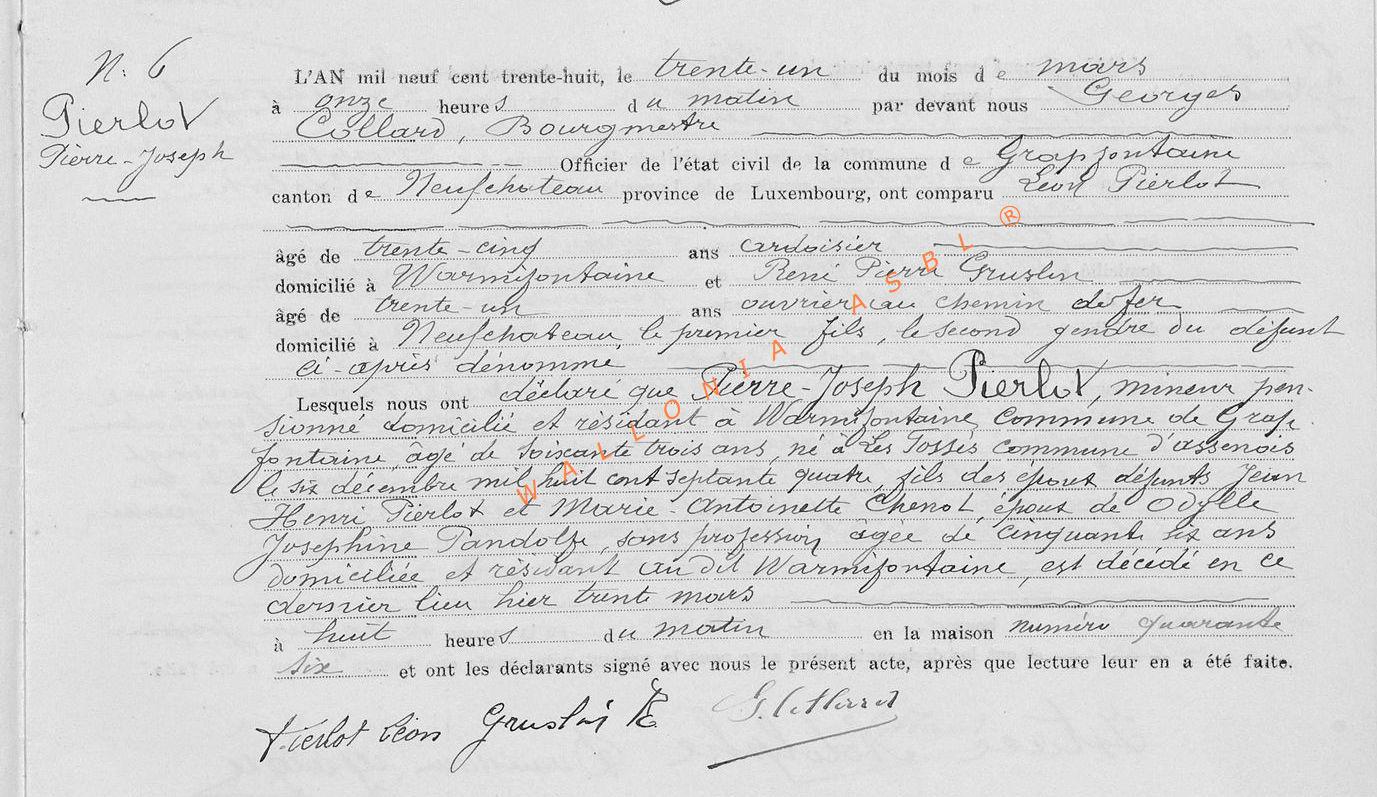 N. 6
Pierlot
Pierre-Joseph
L'AN mil neuf cent trente-huit, le trente-un du mois de mars
à onze heures du matin par devant nous Georges
Collard, Bourgmestre
Officier de l'état civil de la commune de Grapfontaine
canton de Neufchateau province de Luxembourg, ont comparu Léon Pierlot
âgé de trente-cinq ans ardoisier
domicilié à Warmifontaine et René Pierre Gruslin
âgé de trente-un ans ouvrier au chemin de fer
domicilié à Neufchateau, le premier fils, le second gendre du défunt
ci-après dénommé
Lesquels nous ont déclaré que Pierre-Joseph Pierlot, mineur pen-
sionné domicilié et résidant à Warmifontaine, commune de Grap-
fontaine, âgé de soixante trois ans, né à Les Fossés commune d'assenois
le six décembre mil huit cent septante quatre, fils des époux défunts Jean
Henri Pierlot et Marie-Antoinette Chenot, époux de Odylle
Josephine Pandolfe, sans profession, âgée de cinquante six ans
domiciliée et résidant au dit Warmifontaine, est décédé en ce
dernier lieu hier trente mars
à huit heures du matin en la maison numéro quarante
six et ont les déclarants signé avec nous le présent acte, après que lecture leur en a été faite.
Pierlot Léon Gruslin R G. Collard
WALLONIA ASBL ®